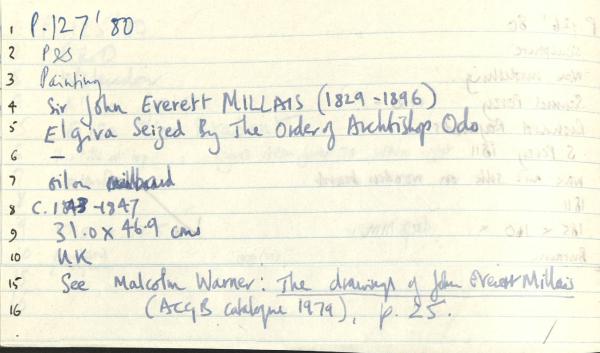 1 P.127'80
2 P&S
3 Painting
4 Sir John Everett MILLAIS (1829-1896)
5 Elgiva Seized By The Order of Archbishop Odo
6 —
7 oil on millboard
8 c. 1843-1847
9 31.0 x 46.9 cms
10 UK
15 See Malcolm Warner: The drawings of John Everett Millais
16 (ACGB catalogue 1979), p. 25.